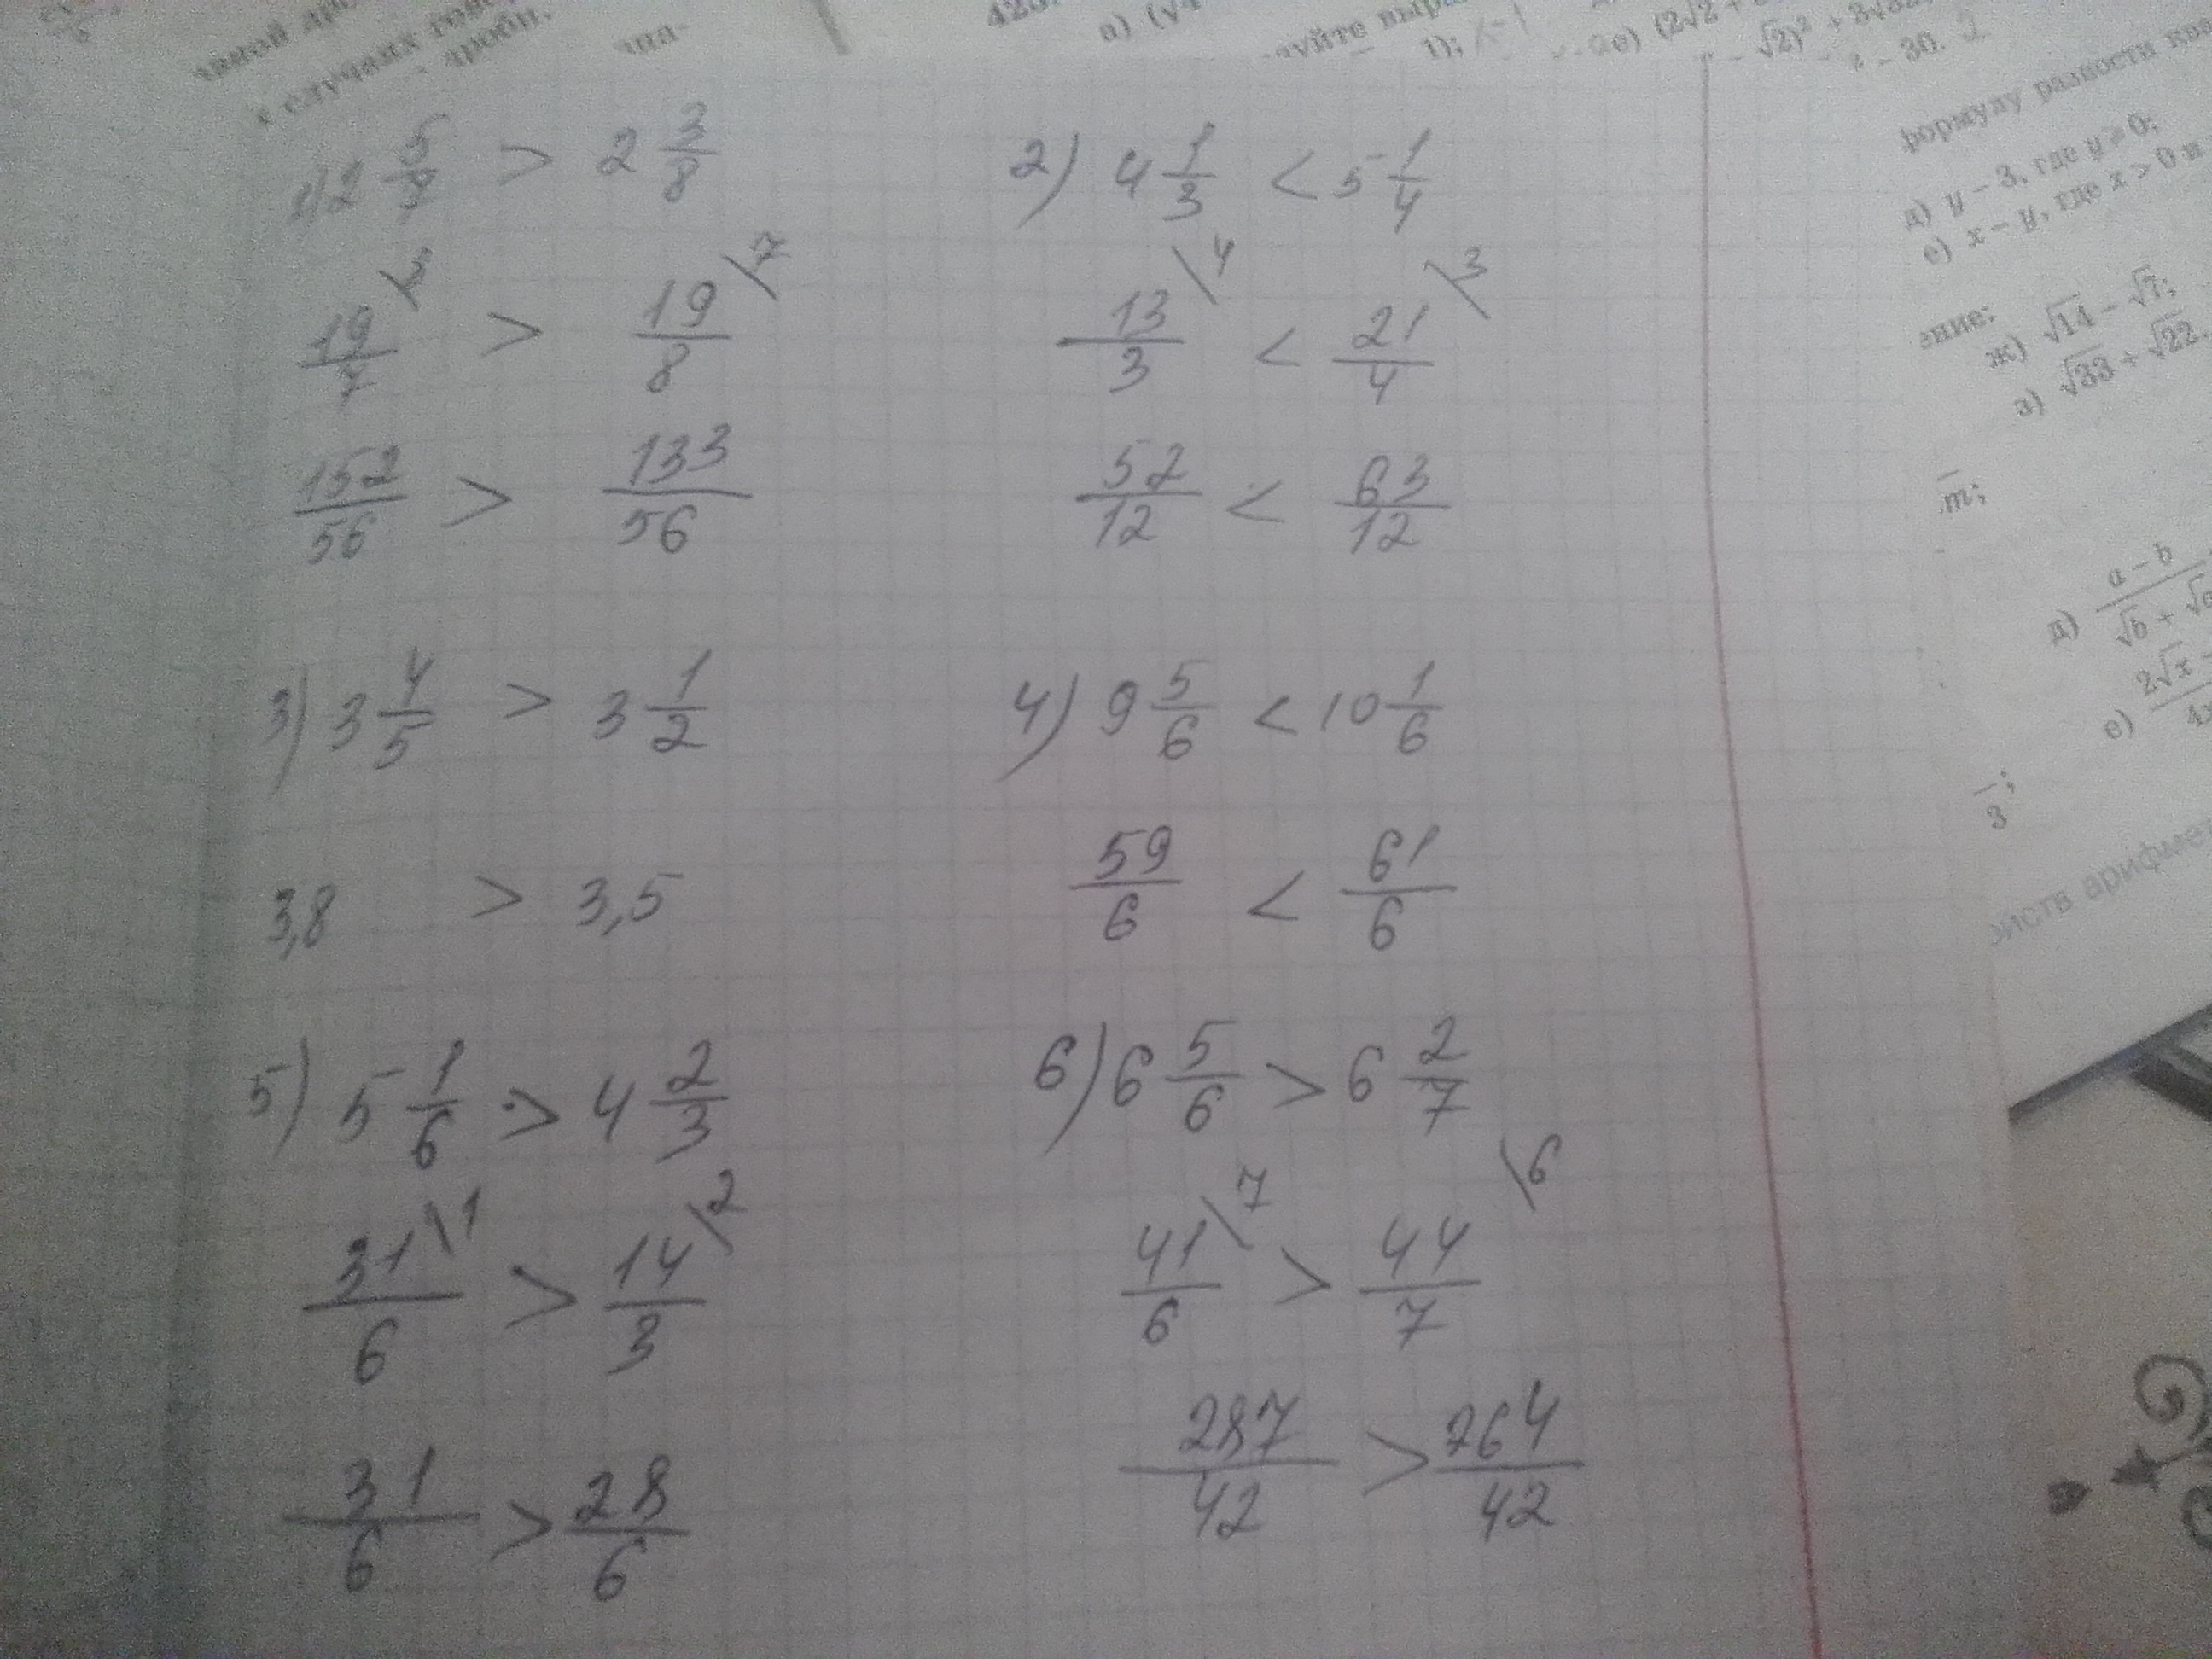 1) 2 5/7 > 2 3/8
19/7 > 19/8 \7
152/56 > 133/56
2) 4 1/3 < 5 1/4
13/3 \4 < 21/4 \3
52/12 < 63/12
3) 3 4/5 > 3 1/2
3,8 > 3,5
4) 9 5/6 < 10 1/6
59/6 < 61/6
5) 5 1/6 > 4 2/3
31/6 \1 > 14/3 \2
31/6 > 28/6
6) 6 5/6 > 6 2/7
41/6 \7 > 44/7 \6
287/42 > 264/42
к случаях
дроби.
формулу разности
д) y − 3, где y ≥ 0;
е) x − y, где x > 0 и
ж) √14 − √7;
з) √33 + √22.
m;
д) a − b / √b + √a
е) 2√x −
3;